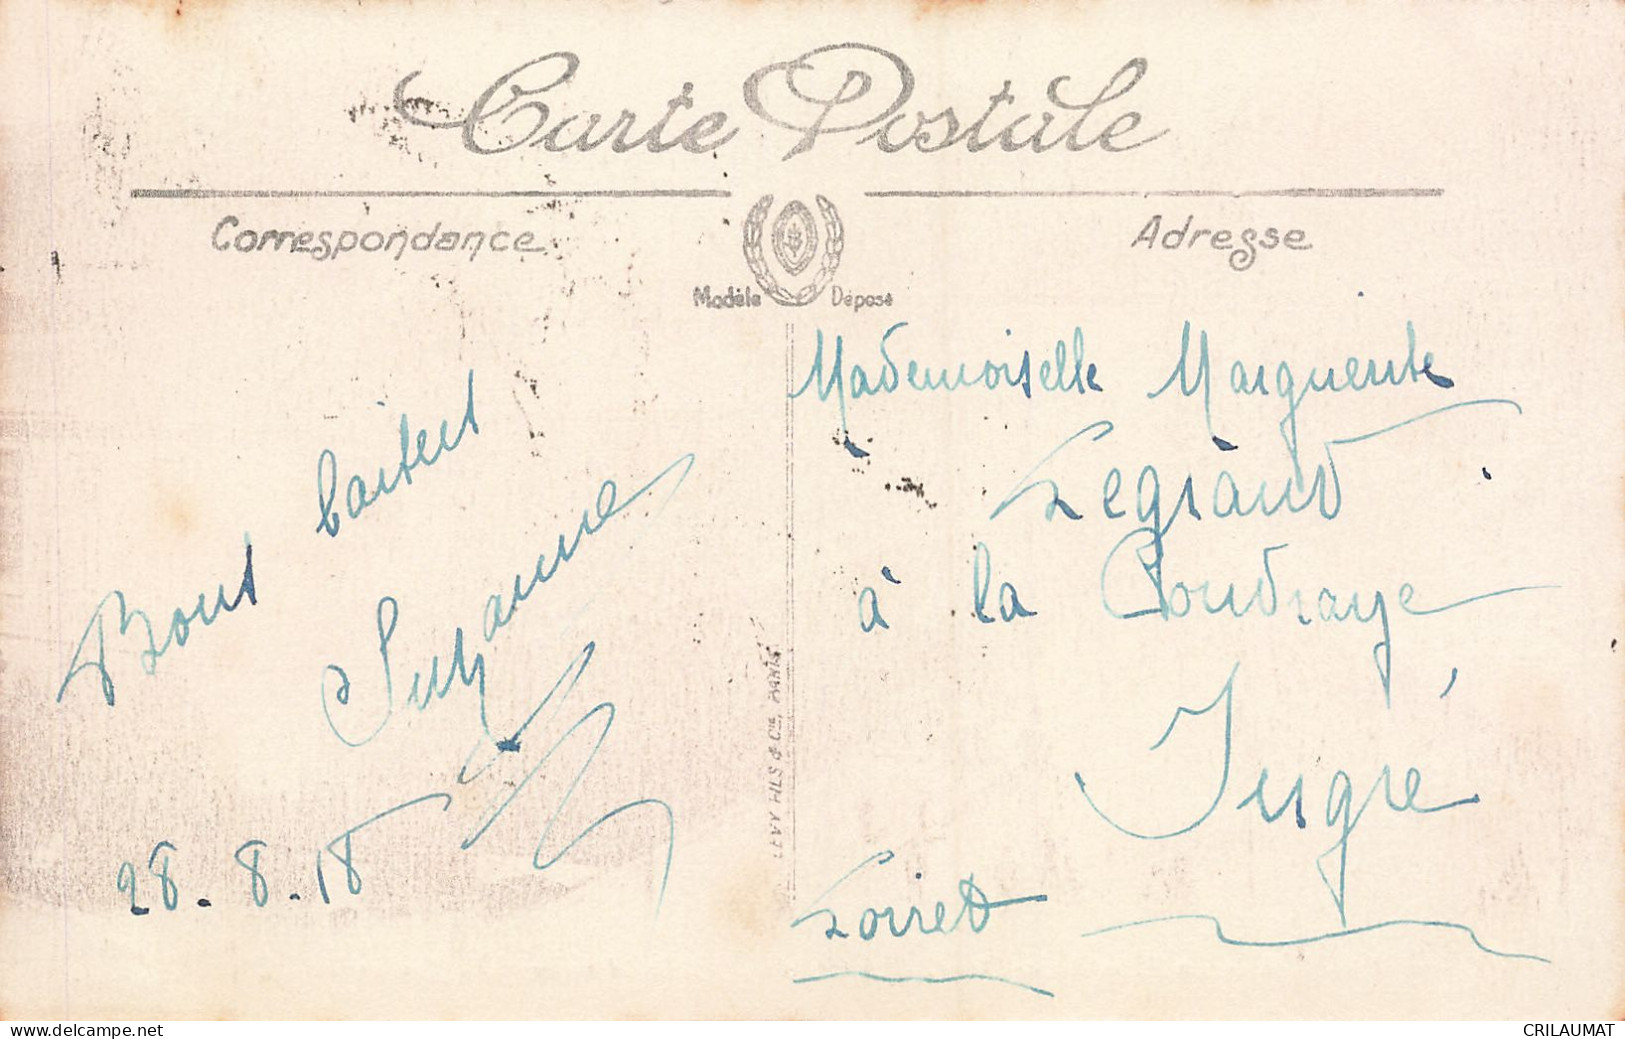 Carte Postale
Correspondance
Adresse
Modèle Déposé
Bons baisers
Suzanne
28.8.18
LEVY FILS & Cie, PARIS
Mademoiselle Marguerite
Legrand
à la Coudraye
Ingré
Loiret
www.delcampe.net
CRILAUMAT